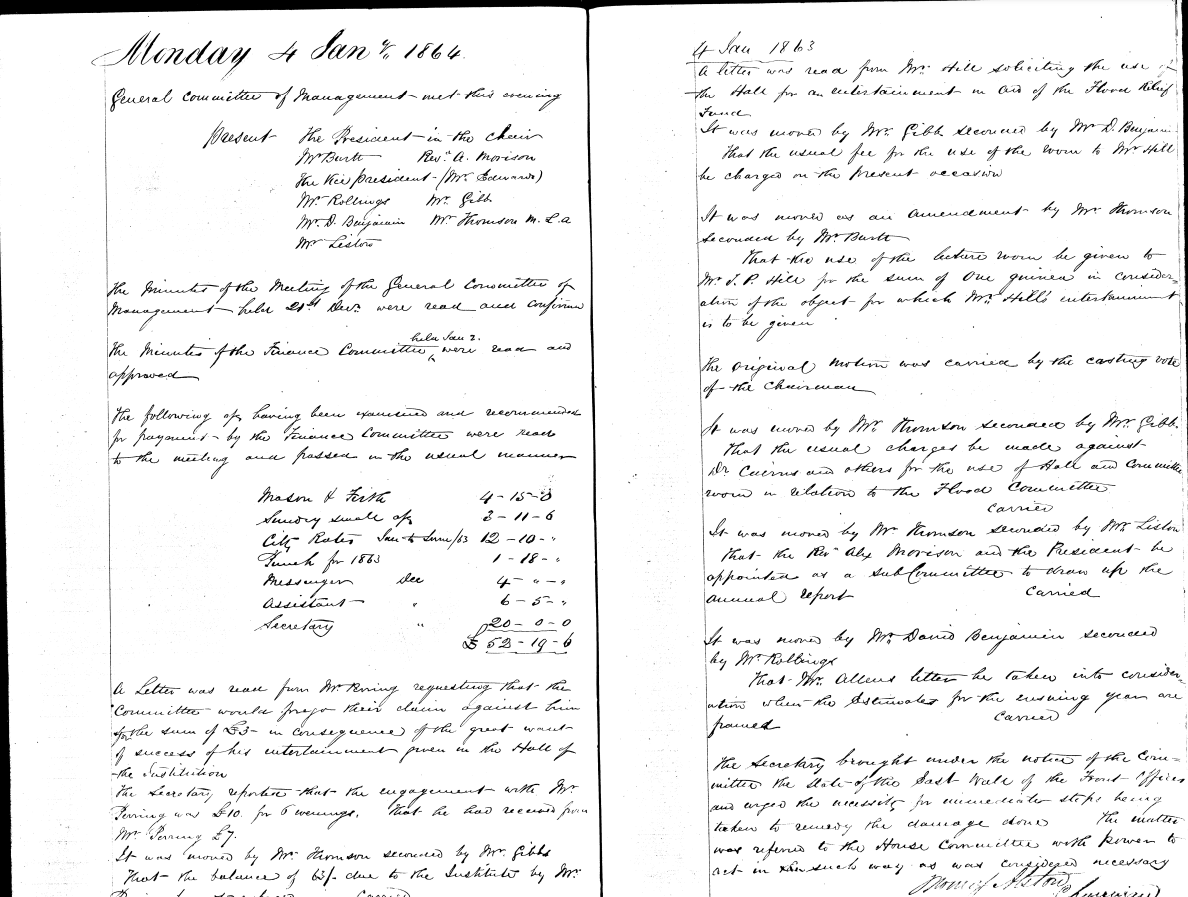 Monday 4 Jany 1864.
General Committee of Management met this evening
Present The President in the chair
Mr Burth Revd A. Morison
The Vice President (Mr Edwards)
Mr Rollings Mr Gibb
Mr D. Benjamin Mr Thomson M. L. A
Mr Liston
The Minutes of the Meeting of the General Committee of
Management held 21st Decr. were read and confirmed
held Jan 2.
The Minutes of the Finance Committee were read and
approved
The following having been examined and recommended
for payment by the Finance Committee were read
to the meeting and passed in the usual manner
Mason & Firth 4-15-0
Sundry small 3-11-6
City Rates Jan to June/63 12-10-"
Punch for 1863 1-18-"
Messenger Dec 4-"-"
Assistant " 6-5-"
Secretary " 20-0-0
£ 52-19-6
A Letter was read from Mr requesting that the
Committee would forego their claim against him
for the sum of £3- in consequence of the great want
of success of his entertainment given in the Hall of
the Institution
The Secretary reported that the engagement with Mr
Perring was £10. for 6 evenings. That he had received from
Mr Perring £7.
It was moved by Mr Thomson seconded by Mr Gibbs
That the balance of 63/- due to the Institute by Mr.
carried
4 Jan 1863
A letter was read from Mr. Hill soliciting the use of
the Hall for an entertainment in aid of the Flood Relief
Fund
It was moved by Mr. Gibb seconded by Mr D. Benjamin
That the usual fee for the use of the room to Mr Hill
be charged on the present occasion
It was moved as an amendment by Mr. Thomson
seconded by Mr. Burth
That the use of the lecture room be given to
Mr. J. P. Hill for the sum of One guinea in consider-
ation of the object for which Mr. Hill's entertainment
is to be given
The original motion was carried by the casting vote
of the Chairman
It was moved by Mr. Thomson seconded by Mr. Gibb.
That the usual charges be made against
Dr Cairns and others for the use of Hall and Committee
room in relation to the Flood Committee
carried
It was moved by Mr Thomson seconded by Mr. Liston
That the Revd Alex Morison and the President be
appointed as a subCommittee to draw up the
annual report carried
It was moved by Mr. David Benjamin seconded
by Mr Rollings
That Mr. Allens letter be taken into consider-
ation when the Estimates for the ensuing year are
framed carried
The Secretary brought under the notice of the Com=
mittee the state of the East Wall of the Front Offices
and urged the necessity for immediate steps being
taken to remedy the damage done The matter
was referred to the House Committee with power to
act in such way as was considered necessary